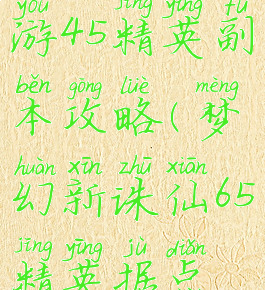 yóu jīng yīng fù
游45精英副
běn gōng lüè mèng
本攻略(梦
huàn xīn zhū xiān
幻新诛仙65
jīng yīng jù diǎn
精英据点